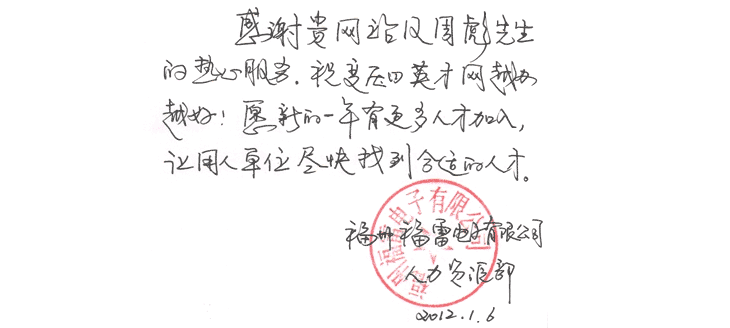 感谢贵网站及周彪先生
的热心服务。祝厦门英才网越办
越好！愿新的一年有更多人才加入，
让用人单位尽快找到合适的人才。
福州福雷电子有限公司
人力资源部
2012.1.6
福州福雷电子有限公司